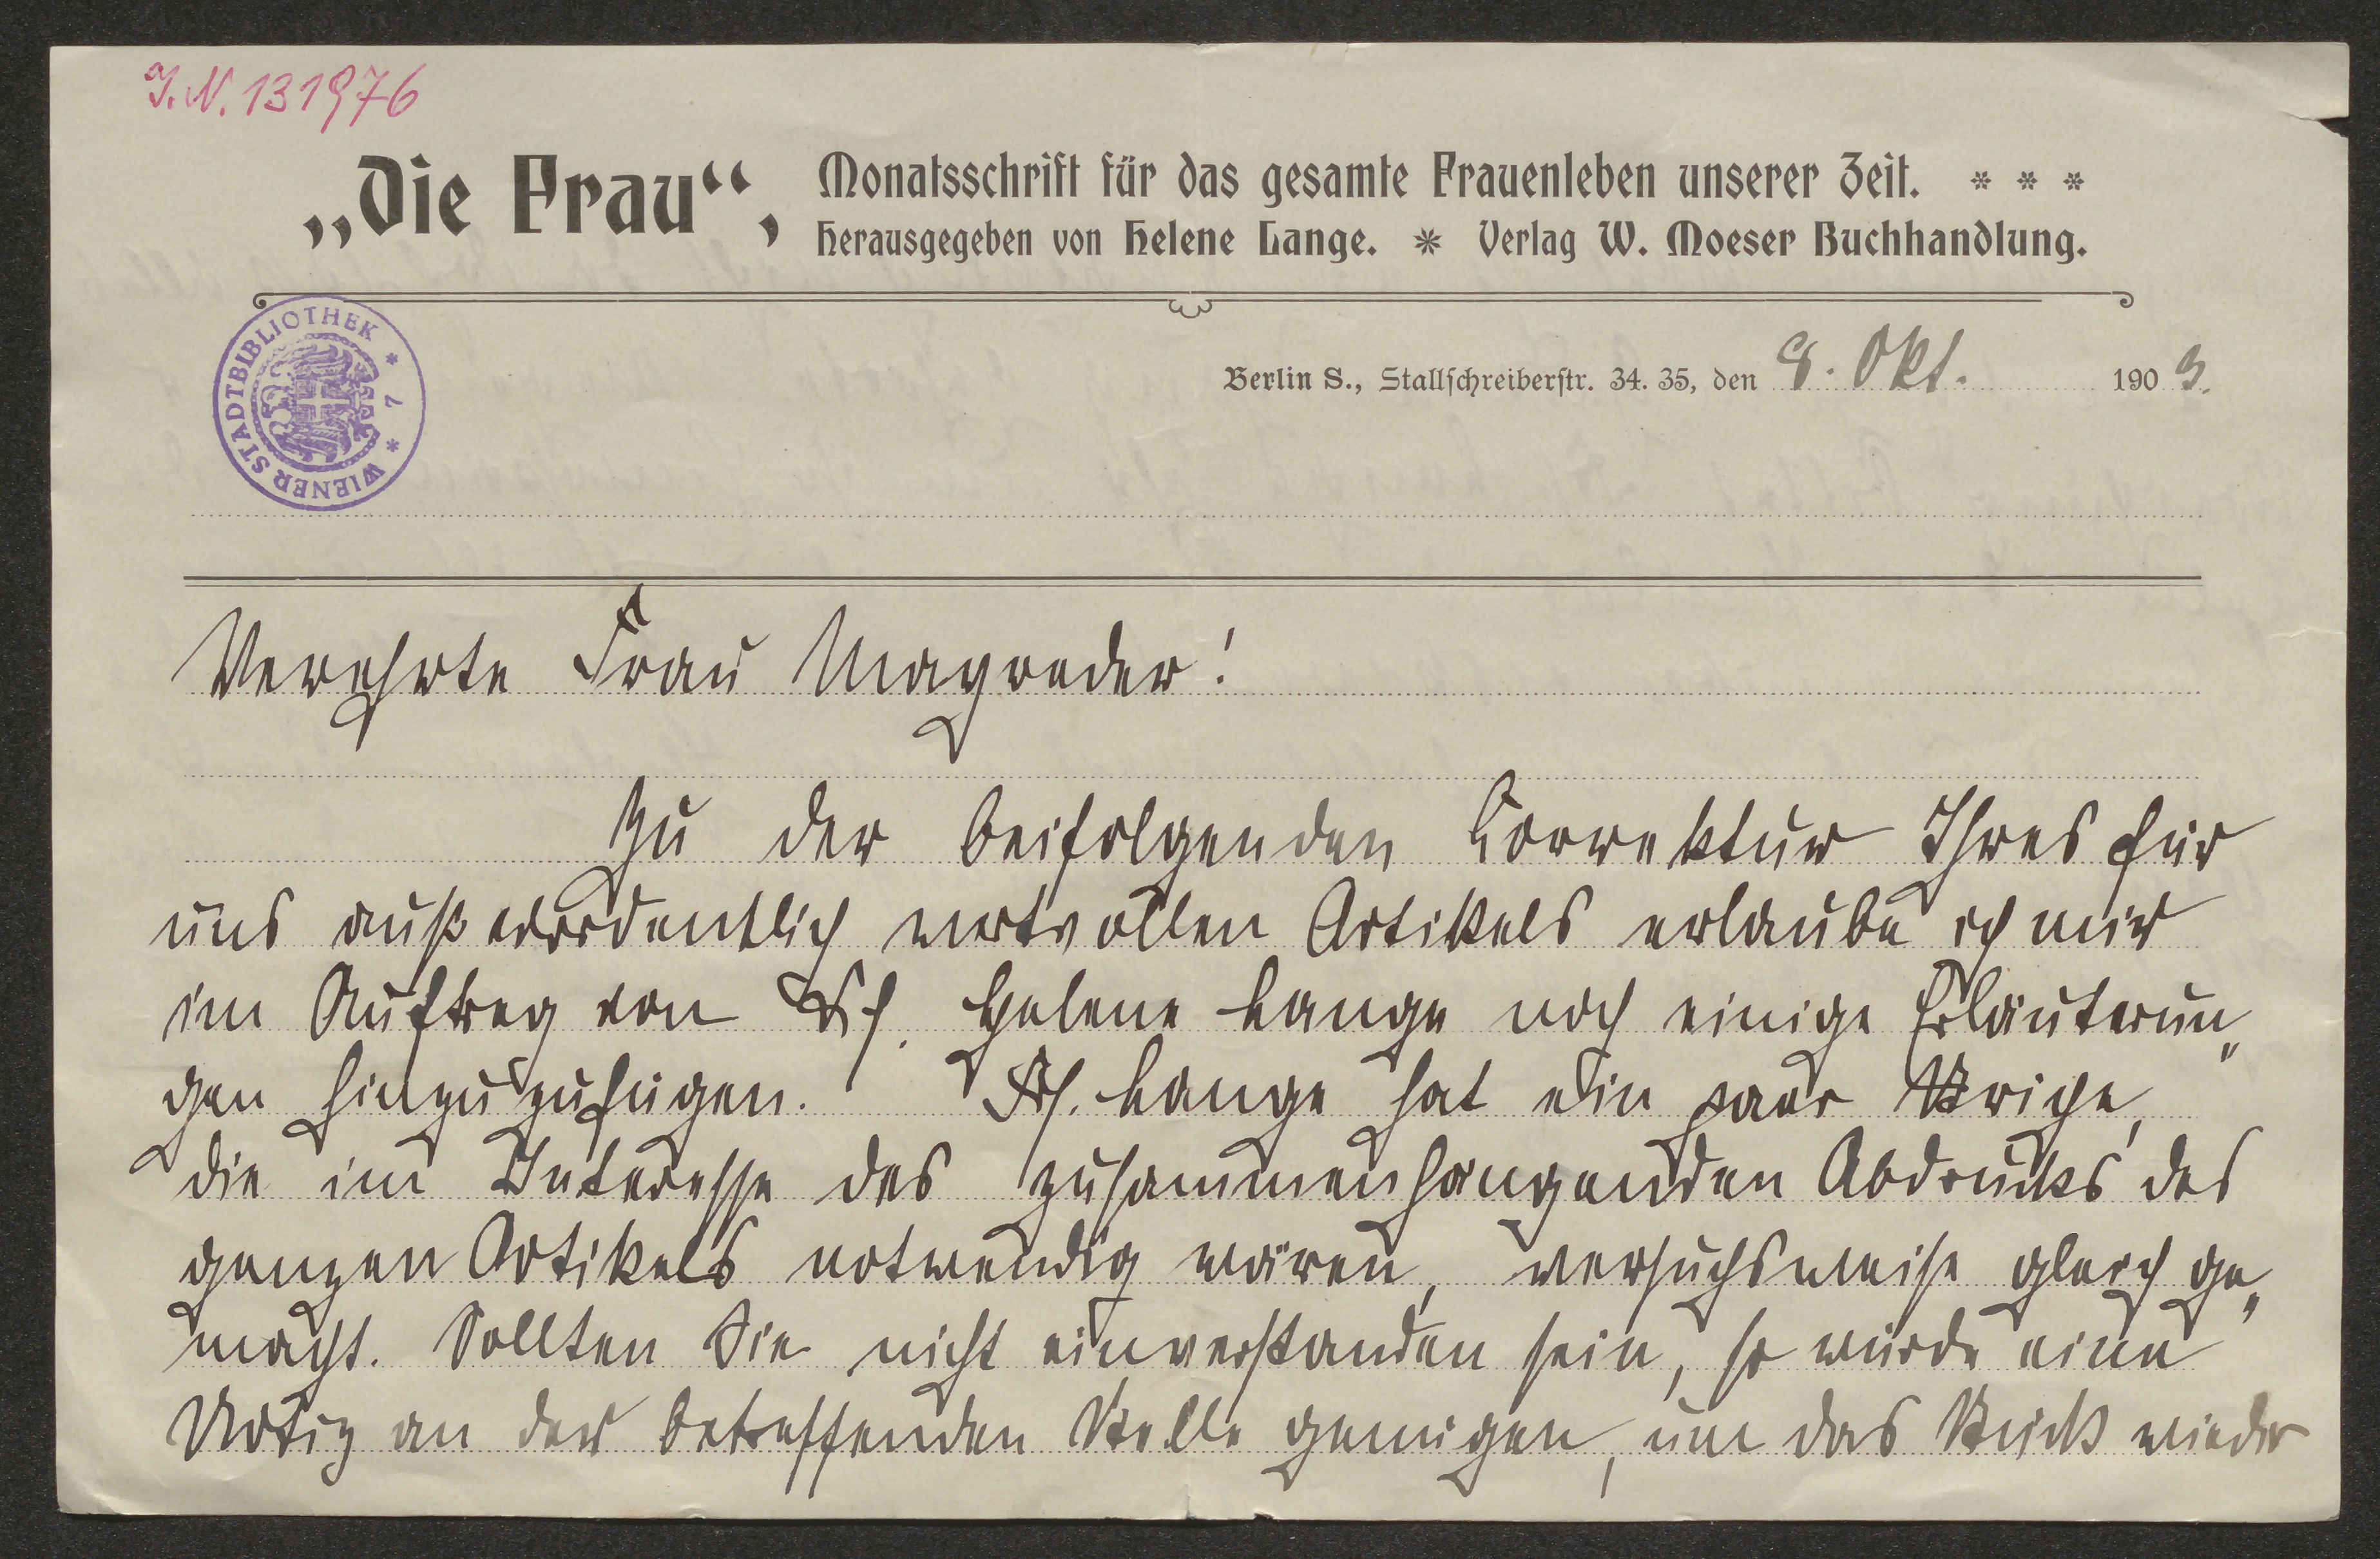 I.N. 131976
„Die Frau“, Monatsschrift für das gesamte Frauenleben unserer Zeit. * * *
Herausgegeben von Helene Lange. * Verlag W. Moeser Buchhandlung.
WIENER STADTBIBLIOTHEK * 7 *
Berlin S., Stallschreiberstr. 34. 35, den 8. Okt. 1903.
Verehrte Frau Mayreder!
Zu der beifolgenden Correktur Ihres für
uns außerordentlich wertvollen Artikels erlaube ich mir
im Auftrag von Frl. Helene Lange noch einige Erläuterun„
gen hinzuzufügen. Frl. Lange hat ein paar Striche,
die im Interesse des zusammenhängenden Abdrucks des
ganzen Artikels notwendig wären, versuchsweise gleich ge„
macht. Sollten Sie nicht einverstanden sein, so würde eine
Notiz an der betreffenden Stelle genügen, um das Stück wieder